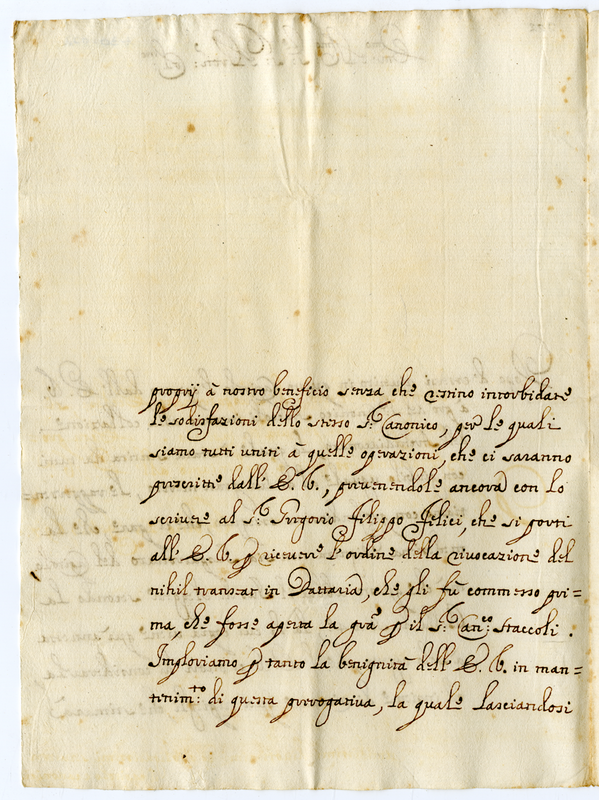 proprij à nostro beneficio senza che restino intorbidate
le sodisfazioni dello stesso S.r Canonico, per le quali
siamo tutti uniti à quelle operazioni, che ci saranno
prescritte dall' E. V., prevenendole ancora con lo
scrivere al S.r Gregorio Filippo Felici, che si porti
all' E. V. p ricevere l'ordine della rivocazione del
nihil transeat in Dattaria, che gli fù commesso pri=
ma, che fosse aperta la grã p il S.r Can.co Staccoli.
Imploriamo p tanto la benignità dell' E. V. in man=
tenim.to di questa prerogativa, la quale lasciandosi